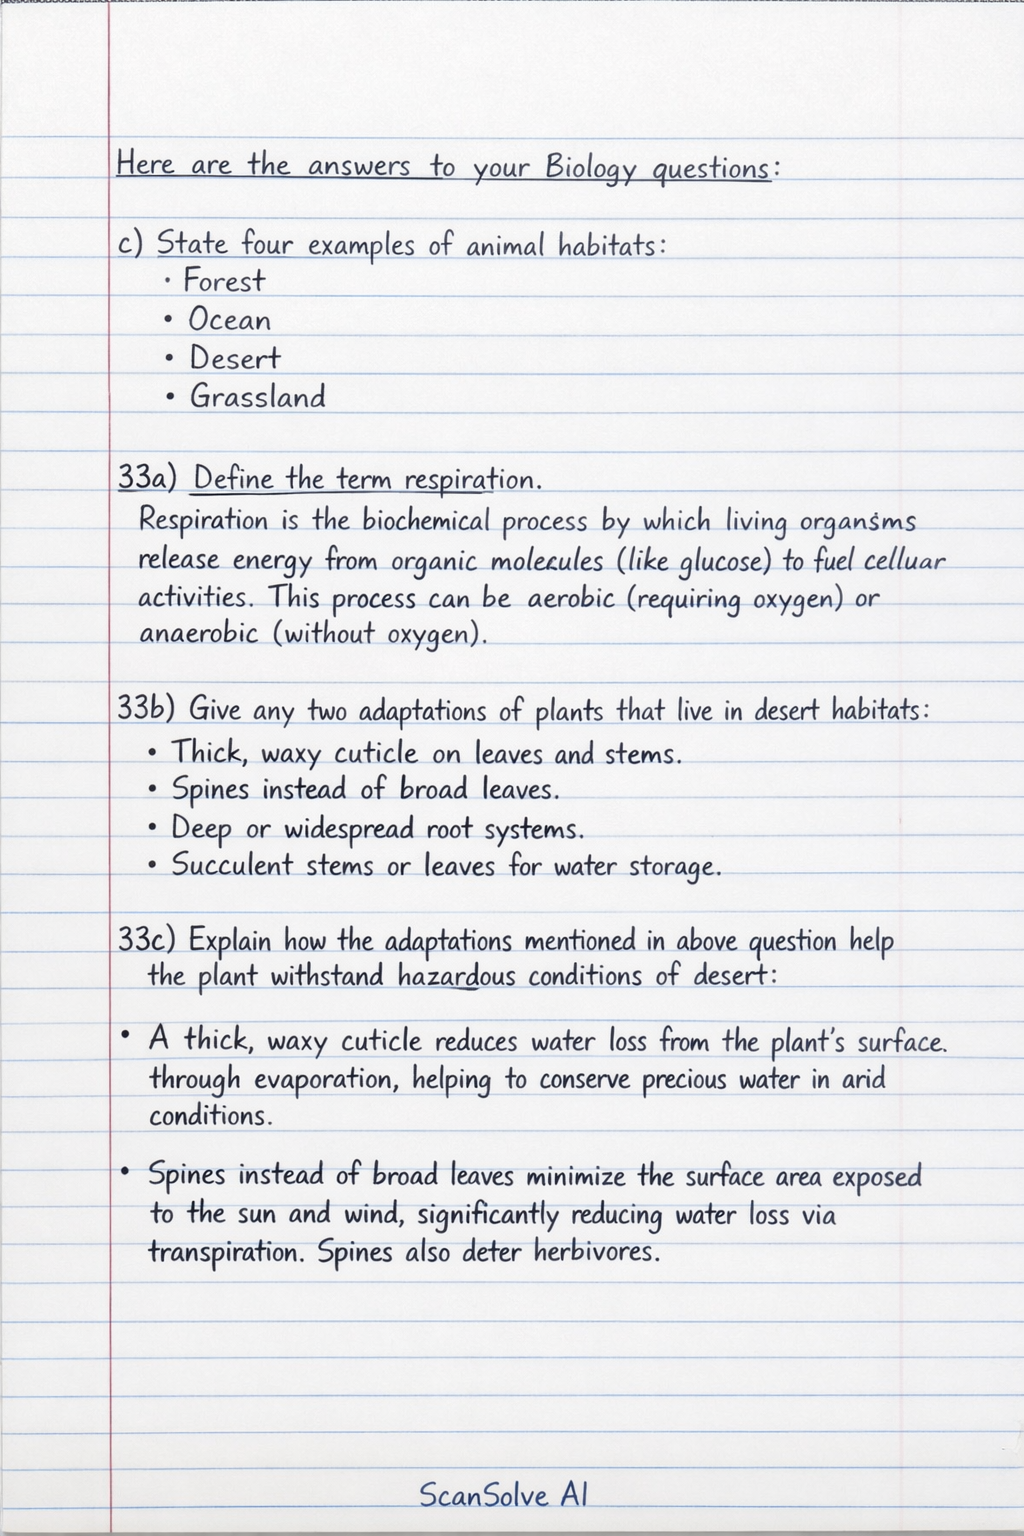 Here are the answers to your Biology questions:
c) State four examples of animal habitats:
• Forest
• Ocean
• Desert
• Grassland
33a) Define the term respiration.
Respiration is the biochemical process by which living organsms
release energy from organic molecules (like glucose) to fuel celluar
activities. This process can be aerobic (requiring oxygen) or
anaerobic (without oxygen).
33b) Give any two adaptations of plants that live in desert habitats:
• Thick, waxy cuticle on leaves and stems.
• Spines instead of broad leaves.
• Deep or widespread root systems.
• Succulent stems or leaves for water storage.
33c) Explain how the adaptations mentioned in above question help
the plant withstand hazardous conditions of desert:
• A thick, waxy cuticle reduces water loss from the plant's surface.
through evaporation, helping to conserve precious water in arid
conditions.
• Spines instead of broad leaves minimize the surface area exposed
to the sun and wind, significantly reducing water loss via
transpiration. Spines also deter herbivores.
ScanSolve AI